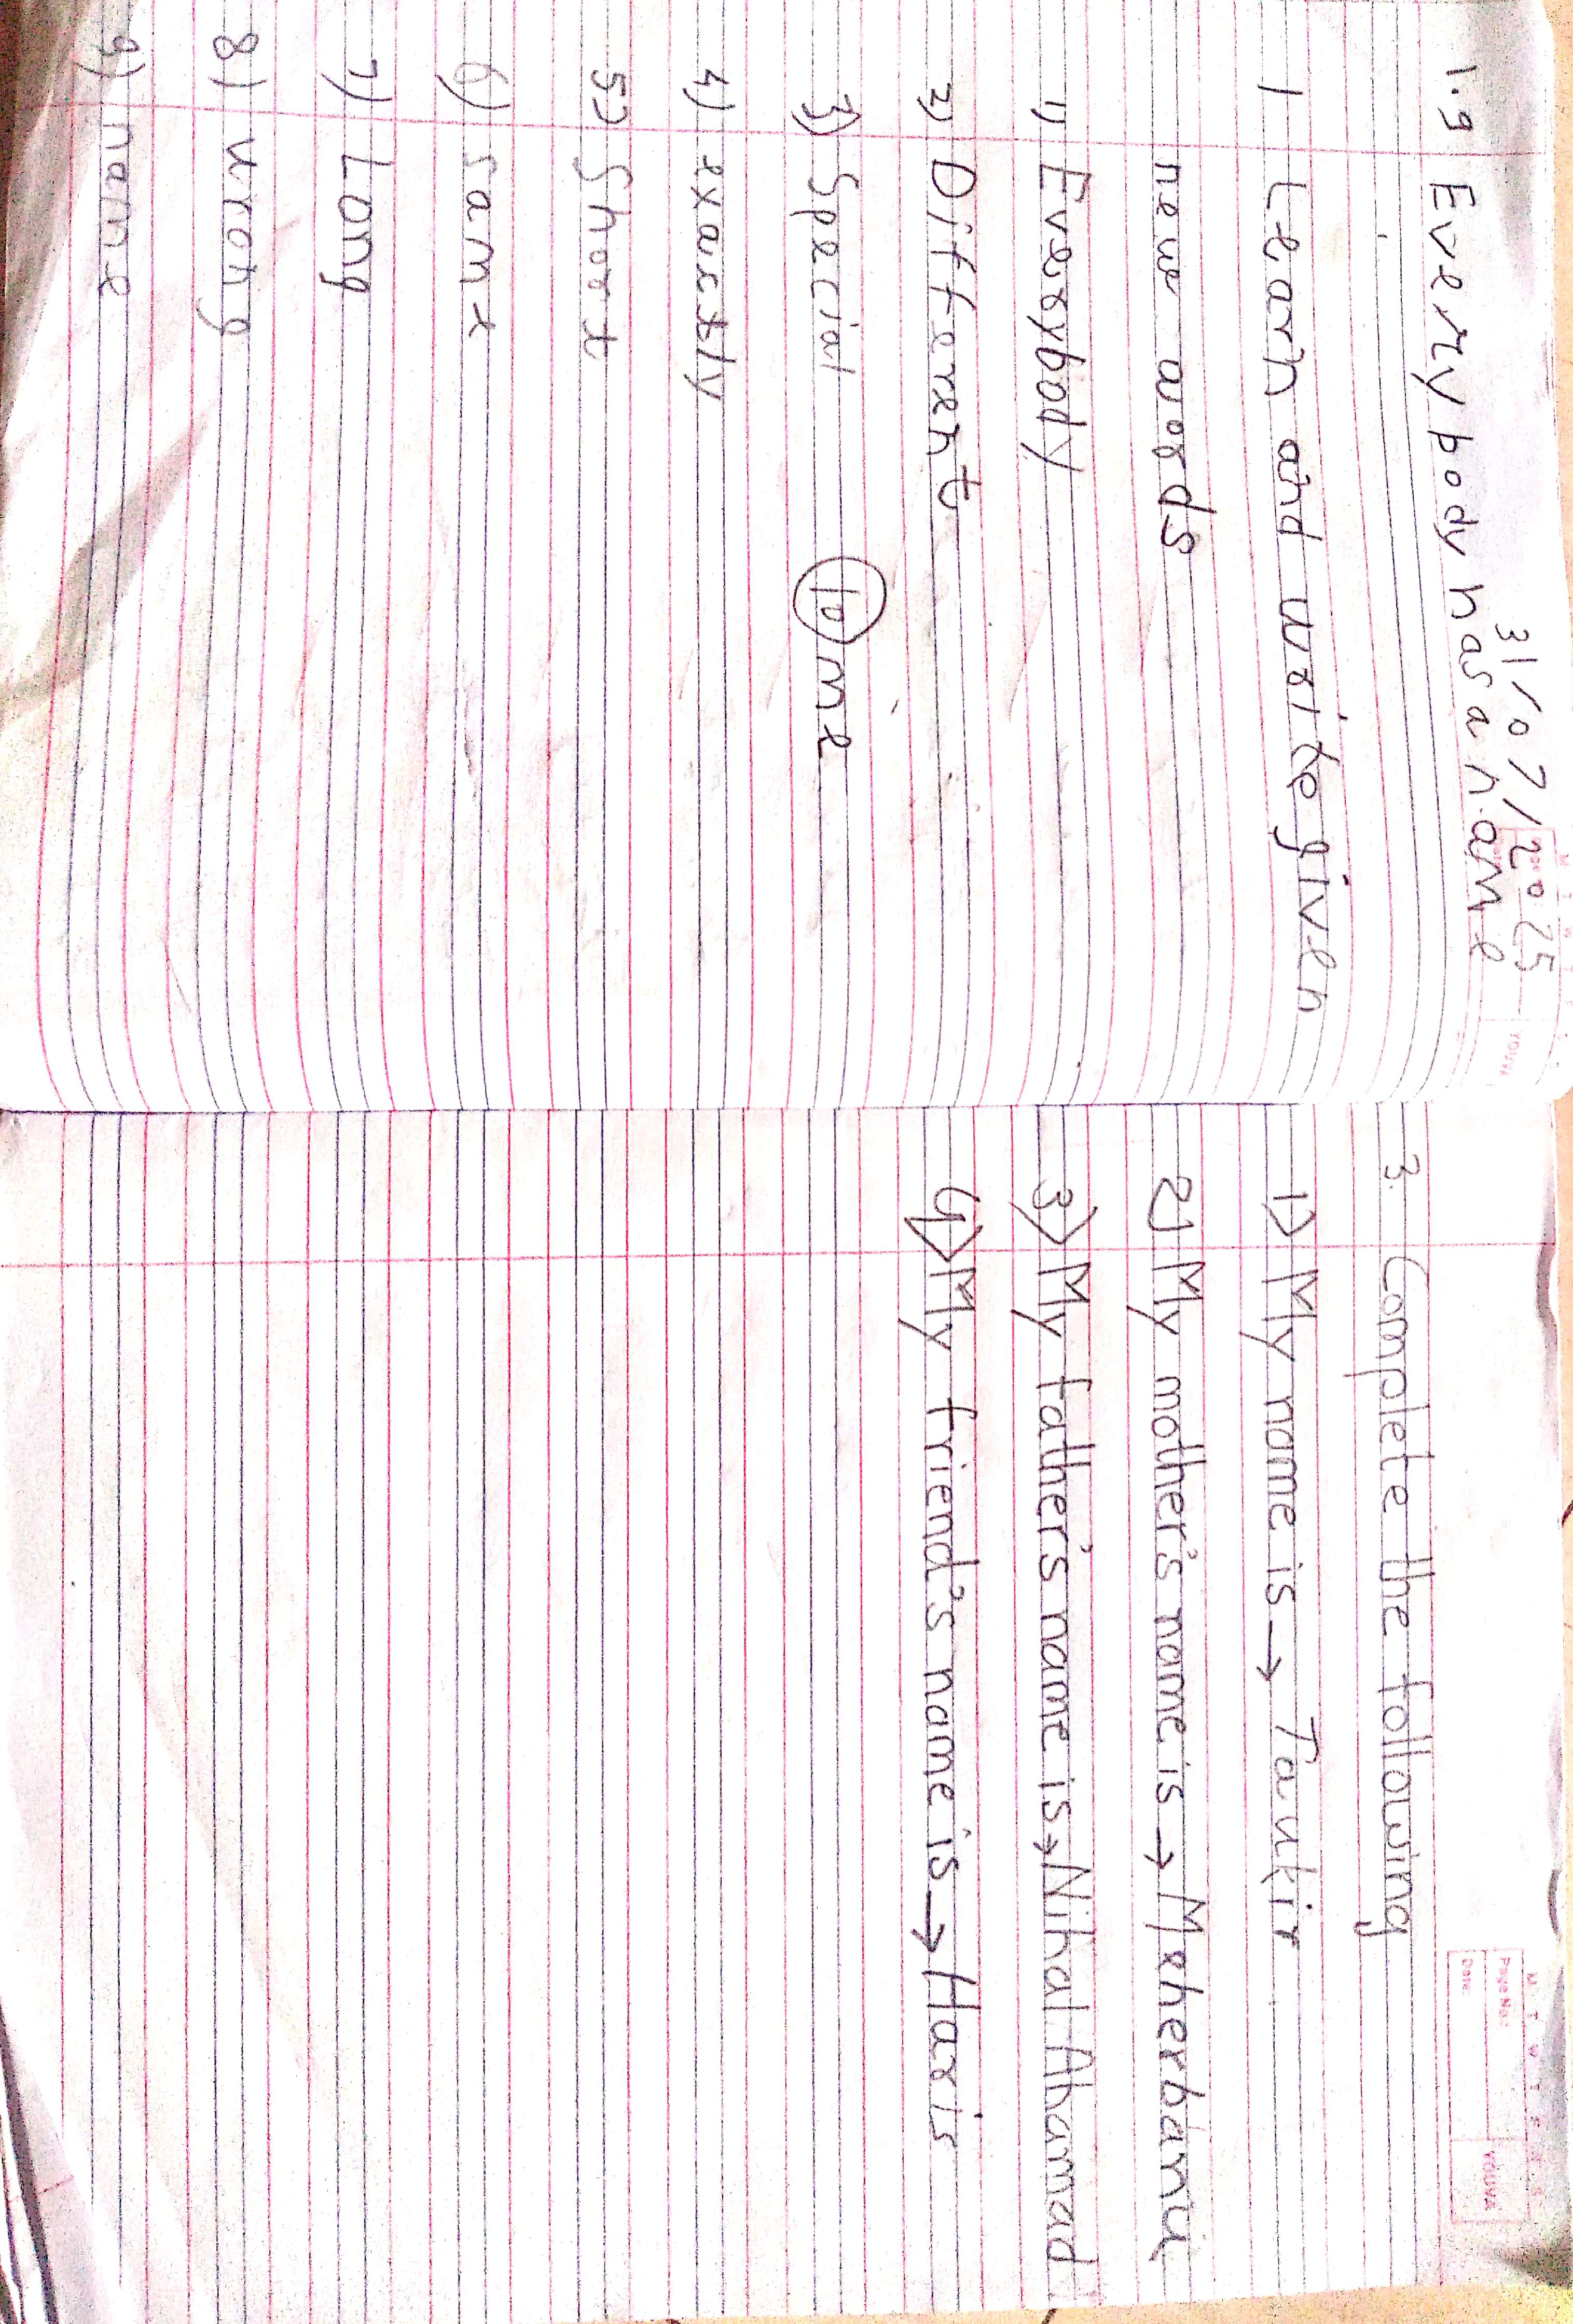 31/07/2025
1.9 Everybody has a name
1 Learn and write given
new words
1) Everybody
2) Different
3) Special 10 me
4) exactly
5) Short
6) Same
7) Long
8) wrong
9) name
3. Complete the following
1) My name is → Taukir
2) My mother's name is → Meherbanu
3) My father's name is → Nihal Ahamad
4) My friend's name is → Haris
Page No.:
Date:
YOUVA